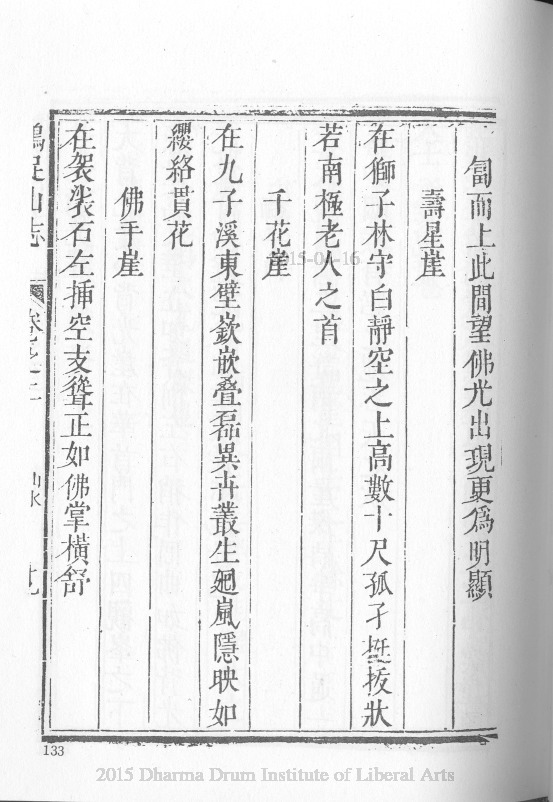 匐而上此間望佛光出現更為明顯
壽星崖
在獅子林守白靜空之上高數十尺孤孑挺拔狀
若南極老人之首
千花崖
在九子溪東壁嶔嵌疊磊異卉叢生廻嵐隱映如
纓絡貫花
佛手崖
在袈裟石左挿空支聳正如佛掌橫舒
鷄足山志
卷之二
山水
2015-04-16
133
2015 Dharma Drum Institute of Liberal Arts